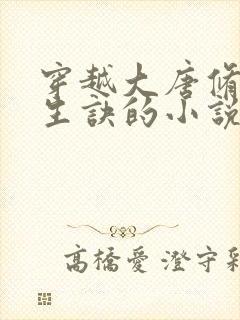 穿越大唐脩
生訣的小說
高橋愛 澄守彩